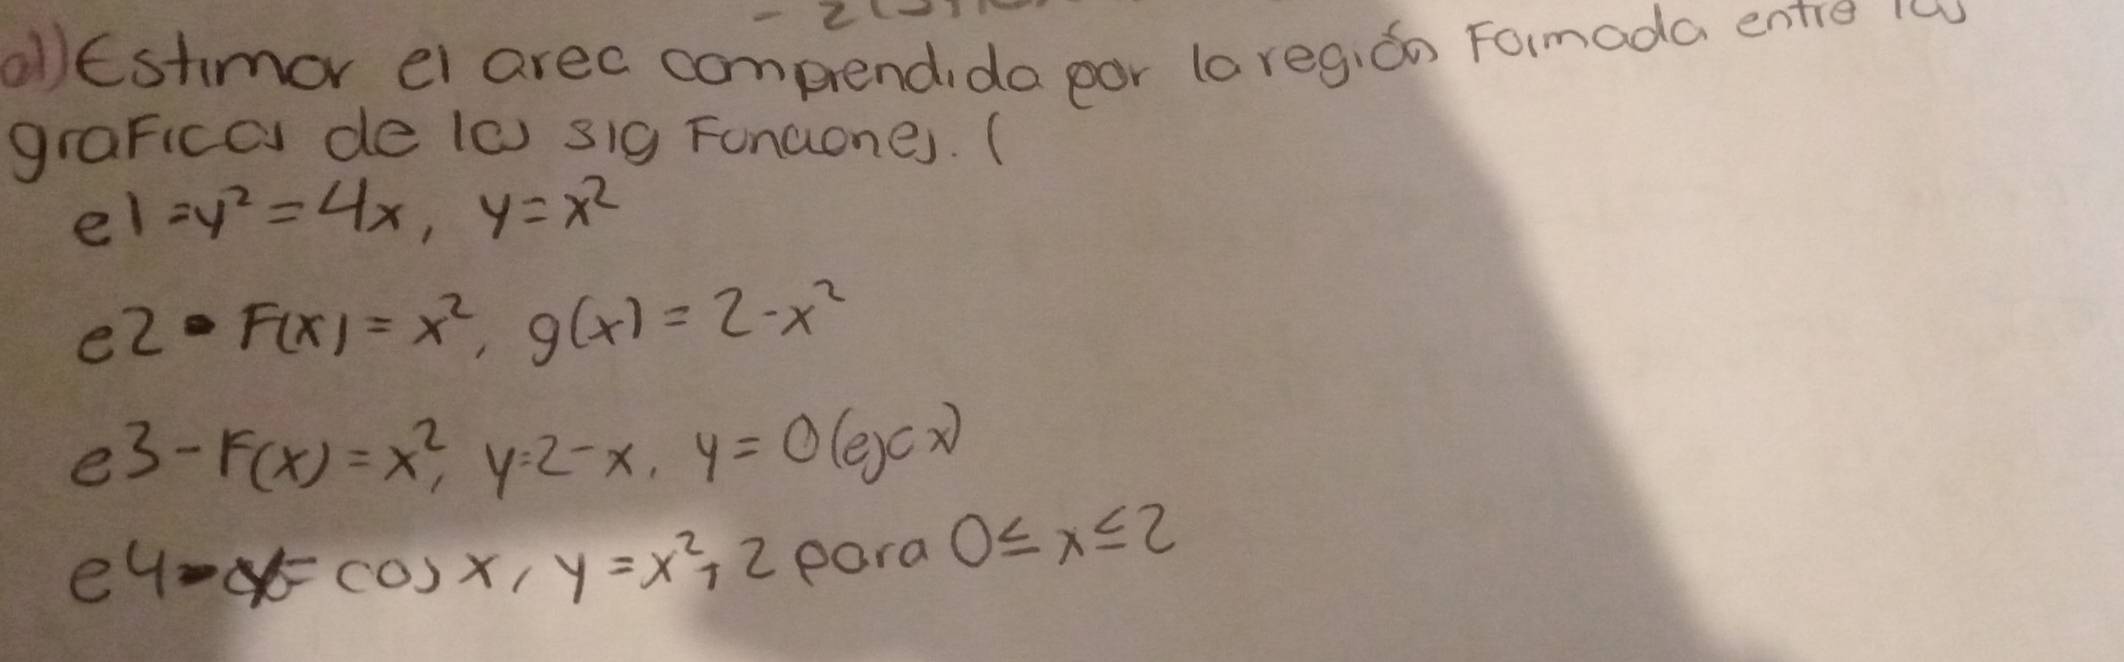 - 2
a1) Estimar el area comprendida por la región Formada entre las
graFicas de las sig Funciones. (
e1 = y² = 4x, y = x²
e2 • F(x) = x², g(x) = 2-x²
e3 - F(x) = x², y=2-x, y = 0 (eje x)
e4 - y = cos x, y = x²+2 para 0≤ x≤2